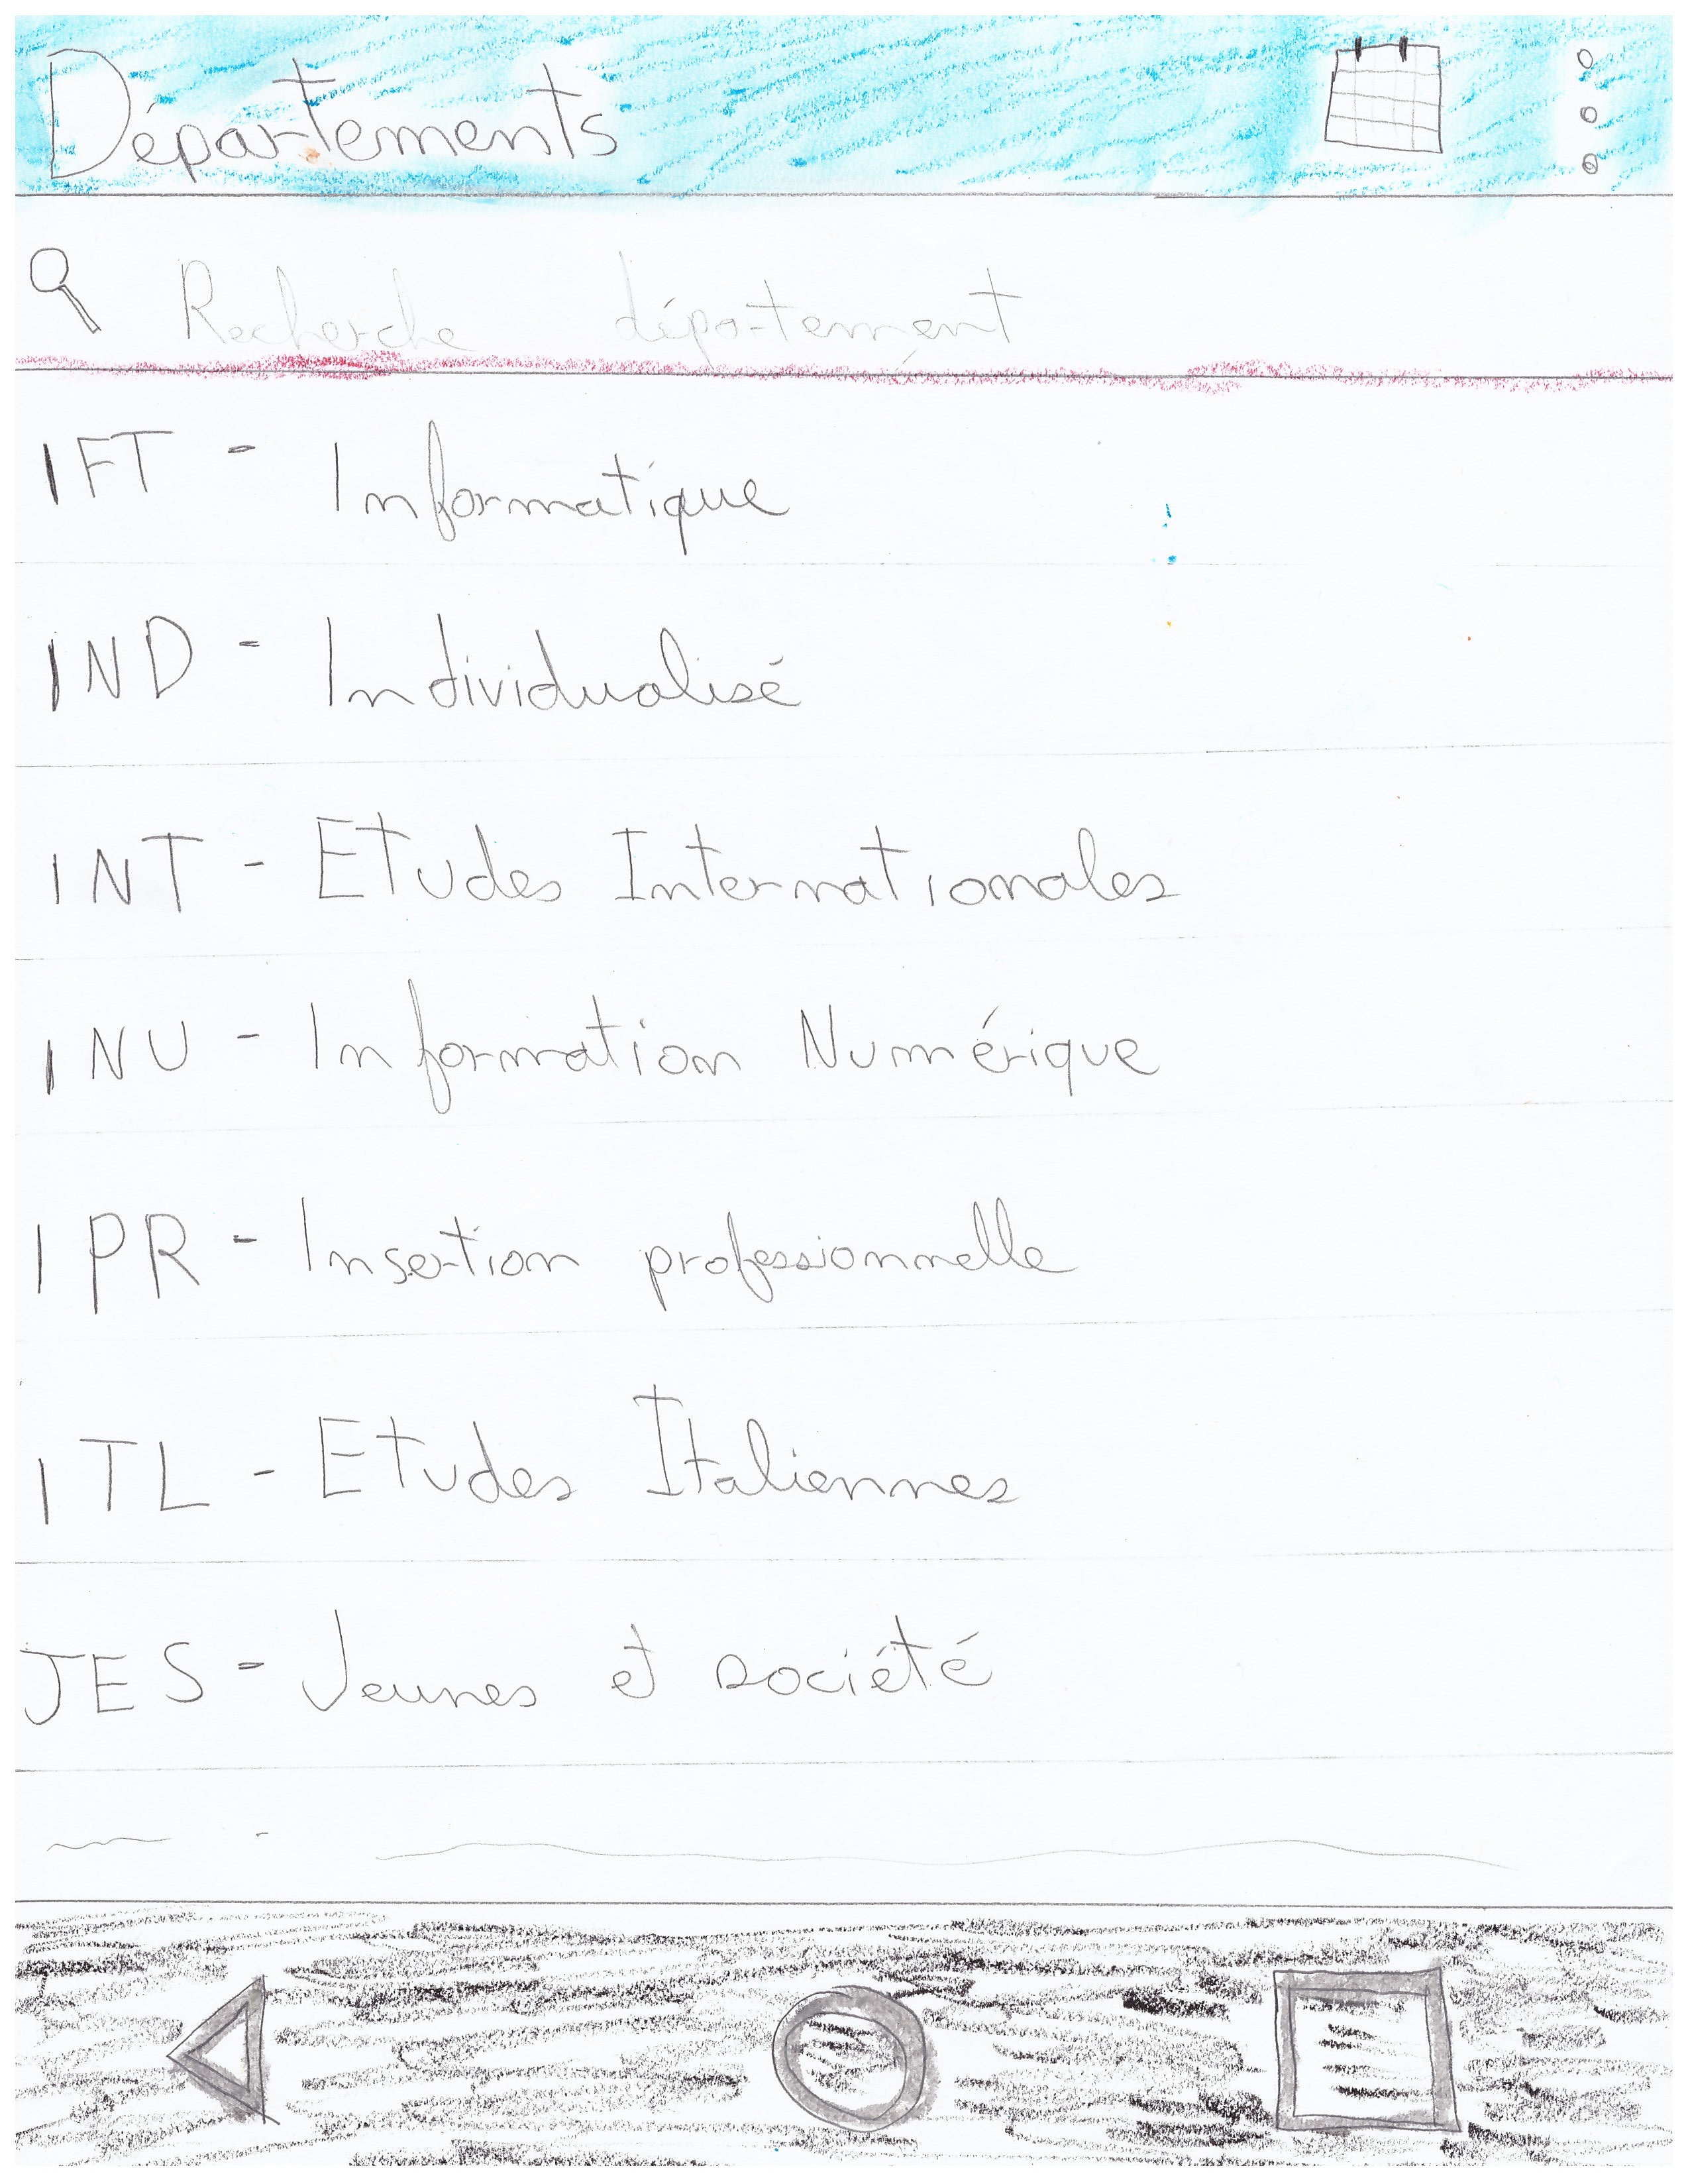 Départements
Recherche département
IFT - Informatique
IND - Individualisé
INT - Etudes Internationales
INU - Information Numérique
IPR - Insertion professionnelle
ITL - Etudes Italiennes
JES - Jeunes et société